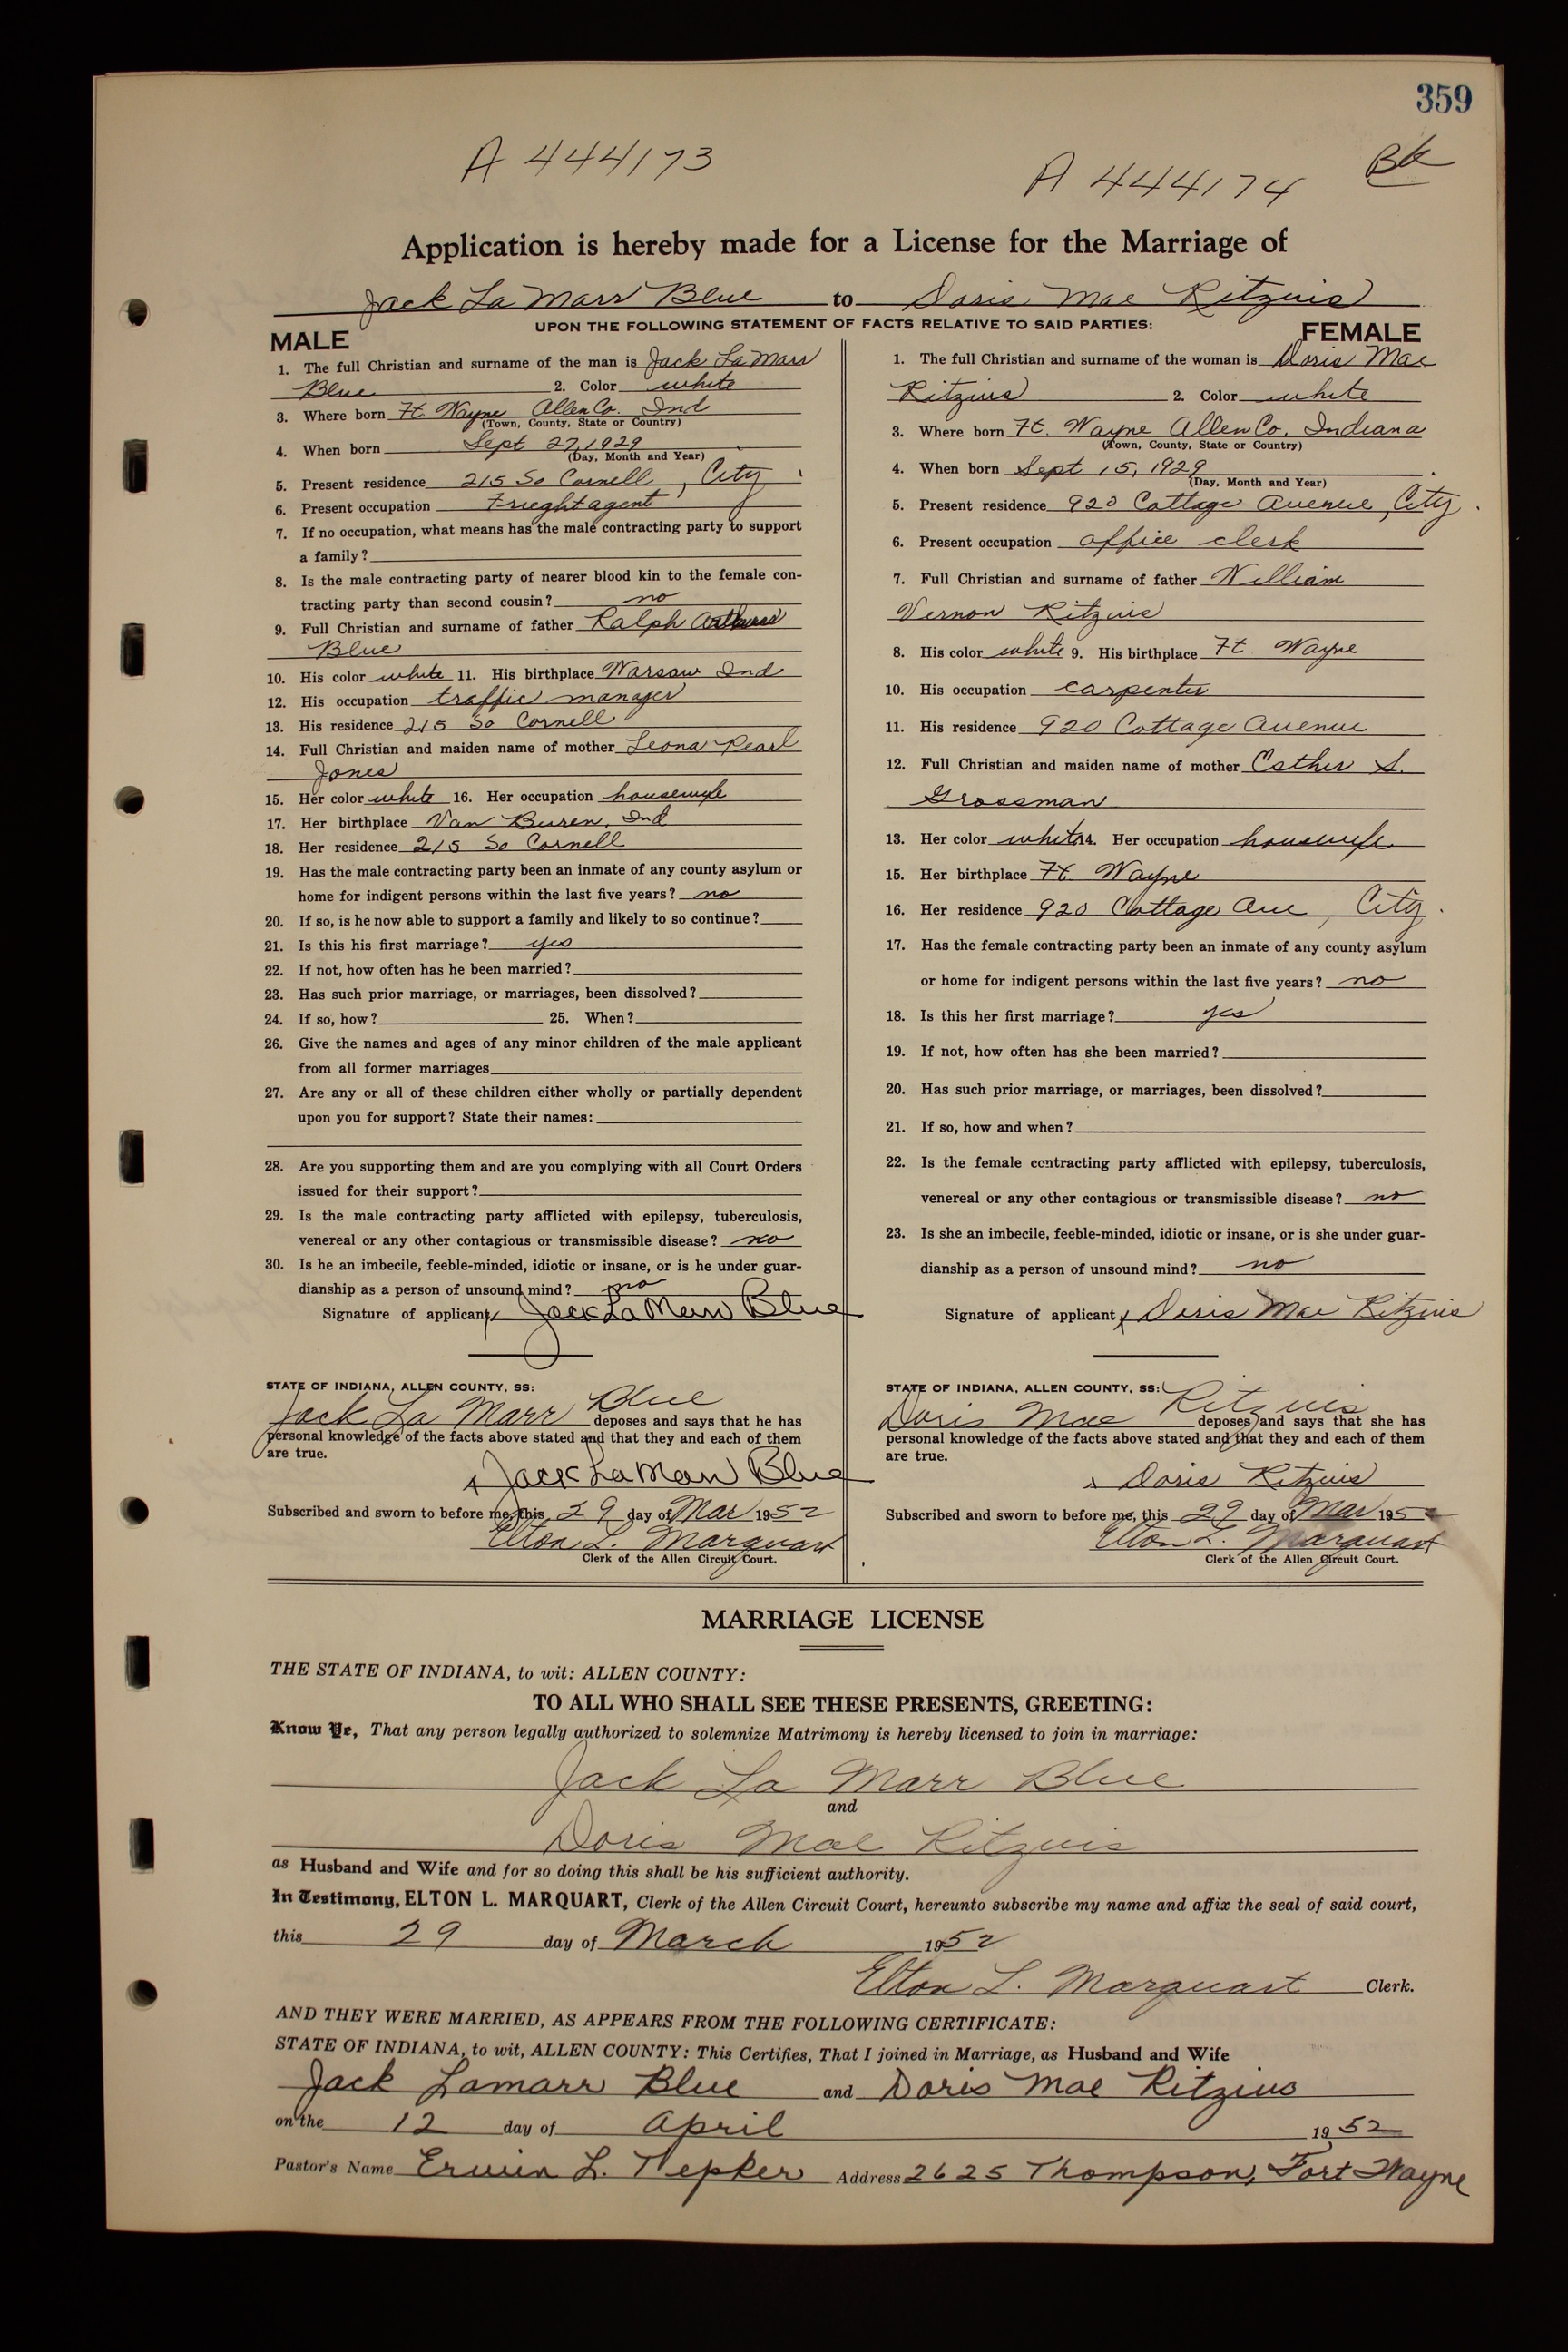 359
A 444173
A 444174
Bk
Application is hereby made for a License for the Marriage of
Jack La Marr Blue to Doris Mae Ritzius
UPON THE FOLLOWING STATEMENT OF FACTS RELATIVE TO SAID PARTIES:
MALE
1. The full Christian and surname of the man is Jack La Marr
Blue 2. Color white
3. Where born Ft Wayne Allen Co. Ind
(Town, County, State or Country)
4. When born Sept 27, 1929
(Day, Month and Year)
5. Present residence 215 So Cornell, City
6. Present occupation Frieght agent
7. If no occupation, what means has the male contracting party to support
a family?
8. Is the male contracting party of nearer blood kin to the female con-
tracting party than second cousin? no
9. Full Christian and surname of father Ralph
Blue
10. His color white 11. His birthplace Warsaw Ind
12. His occupation traffic manager
13. His residence 215 So Cornell
14. Full Christian and maiden name of mother Leona Pearl
Jones
15. Her color white 16. Her occupation housewife
17. Her birthplace Van Buren, Ind
18. Her residence 215 So Cornell
19. Has the male contracting party been an inmate of any county asylum or
home for indigent persons within the last five years? no
20. If so, is he now able to support a family and likely to so continue?
21. Is this his first marriage? yes
22. If not, how often has he been married?
23. Has such prior marriage, or marriages, been dissolved?
24. If so, how? 25. When?
26. Give the names and ages of any minor children of the male applicant
from all former marriages
27. Are any or all of these children either wholly or partially dependent
upon you for support? State their names:
28. Are you supporting them and are you complying with all Court Orders
issued for their support?
29. Is the male contracting party afflicted with epilepsy, tuberculosis,
venereal or any other contagious or transmissible disease? no
30. Is he an imbecile, feeble-minded, idiotic or insane, or is he under guar-
dianship as a person of unsound mind? no
Signature of applicant x Jack La Marr Blue
STATE OF INDIANA, ALLEN COUNTY, SS:
Jack La Marr Blue deposes and says that he has
personal knowledge of the facts above stated and that they and each of them
are true.
x Jack La Marr Blue
Subscribed and sworn to before me, this 29 day of Mar 1952
Elton L. Marquart
Clerk of the Allen Circuit Court.
FEMALE
1. The full Christian and surname of the woman is Doris Mae
Ritzius 2. Color white
3. Where born Ft. Wayne Allen Co. Indiana
(Town, County, State or Country)
4. When born Sept 15, 1929
(Day, Month and Year)
5. Present residence 920 Cottage Avenue, City
6. Present occupation office clerk
7. Full Christian and surname of father William
Vernon Ritzius
8. His color white 9. His birthplace Ft Wayne
10. His occupation carpenter
11. His residence 920 Cottage Avenue
12. Full Christian and maiden name of mother Esther S.
Grossman
13. Her color white 14. Her occupation housewife
15. Her birthplace Ft. Wayne
16. Her residence 920 Cottage Ave, City
17. Has the female contracting party been an inmate of any county asylum
or home for indigent persons within the last five years? no
18. Is this her first marriage? yes
19. If not, how often has she been married?
20. Has such prior marriage, or marriages, been dissolved?
21. If so, how and when?
22. Is the female contracting party afflicted with epilepsy, tuberculosis,
venereal or any other contagious or transmissible disease? no
23. Is she an imbecile, feeble-minded, idiotic or insane, or is she under guar-
dianship as a person of unsound mind? no
Signature of applicant x Doris Mae Ritzius
STATE OF INDIANA, ALLEN COUNTY, SS:
Doris Mae Ritzius deposes and says that she has
personal knowledge of the facts above stated and that they and each of them
are true.
x Doris Ritzius
Subscribed and sworn to before me, this 29 day of Mar 1952
Elton L. Marquart
Clerk of the Allen Circuit Court.
MARRIAGE LICENSE
THE STATE OF INDIANA, to wit: ALLEN COUNTY:
TO ALL WHO SHALL SEE THESE PRESENTS, GREETING:
Know Ye, That any person legally authorized to solemnize Matrimony is hereby licensed to join in marriage:
Jack La Marr Blue
and
Doris Mae Ritzius
as Husband and Wife and for so doing this shall be his sufficient authority.
In Testimony, ELTON L. MARQUART, Clerk of the Allen Circuit Court, hereunto subscribe my name and affix the seal of said court,
this 29 day of March 1952
Elton L. Marquart Clerk.
AND THEY WERE MARRIED, AS APPEARS FROM THE FOLLOWING CERTIFICATE:
STATE OF INDIANA, to wit, ALLEN COUNTY: This Certifies, That I joined in Marriage, as Husband and Wife
Jack Lamarr Blue and Doris Mae Ritzius
on the 12 day of April 1952
Pastor's Name Erwin L. Tepker Address 2625 Thompson, Fort Wayne